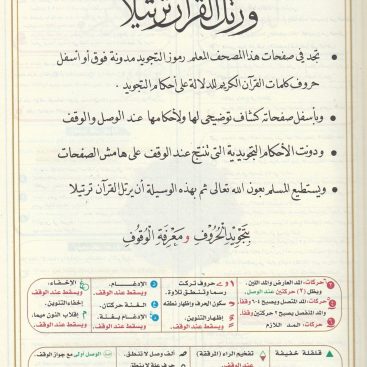 ورتل القرآن ترتيلا
تجد في صفحات هذا المصحف المعلم رموز التجويد مدونة فوق أو أسفل
حروف كلمات القرآن الكريم للدلالة على أحكام التجويد .
وبأسفل صفحاته كشاف توضيحي لها ولأحكامها عند الوصل والوقف
ودونت الأحكام التجويدية التي تنتج عند الوقف على هامش الصفحات
ويستطيع المسلم بعون الله تعالى ثم بهذه الوسيلة أن يرتل القرآن ترتيلا
بِتَجْوِيدِ الْحُرُوفِ وَمَعْرِفَةِ الْوُقُوفِ
حركات: المد العارض والمد اللين.
ويظل (٢) حركتين عند الوصل.
حركات: المد المتصل ويصبح
والمد المنفصل يصبح ٢ حركتين وقفا.
حركات: المد اللازم
حروف تركت
رسما وتنطق تلاوة.
سكون الحرف وإظهار نطقه
إظهار التنوين.
ويسقط عند الوقف
الإدغام.
ويسقط عند الوقف
الغنة حركتان.
الإدغام بغنة.
ويسقط عند الوقف
الإخفاء.
ويسقط عند الوقف
إخفاء التنوين.
إقلاب النون ميما.
ويسقط عند الوقف
قلقلة خفيفة
تفخيم الراء (المرققة)
ألف وصل لا تنطق.
الوصل أولى مع جواز الوقف